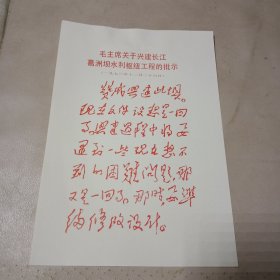 毛主席关于兴建长江
葛洲坝水利枢纽工程的批示
(一九七〇年十二月二十六日)
赞成兴建此坝。
现在文件设想是一回
事。兴建过程中将要
遇到一些现在想不
到的困难问题,那
又是一回事。那时,要准
备修改设计。